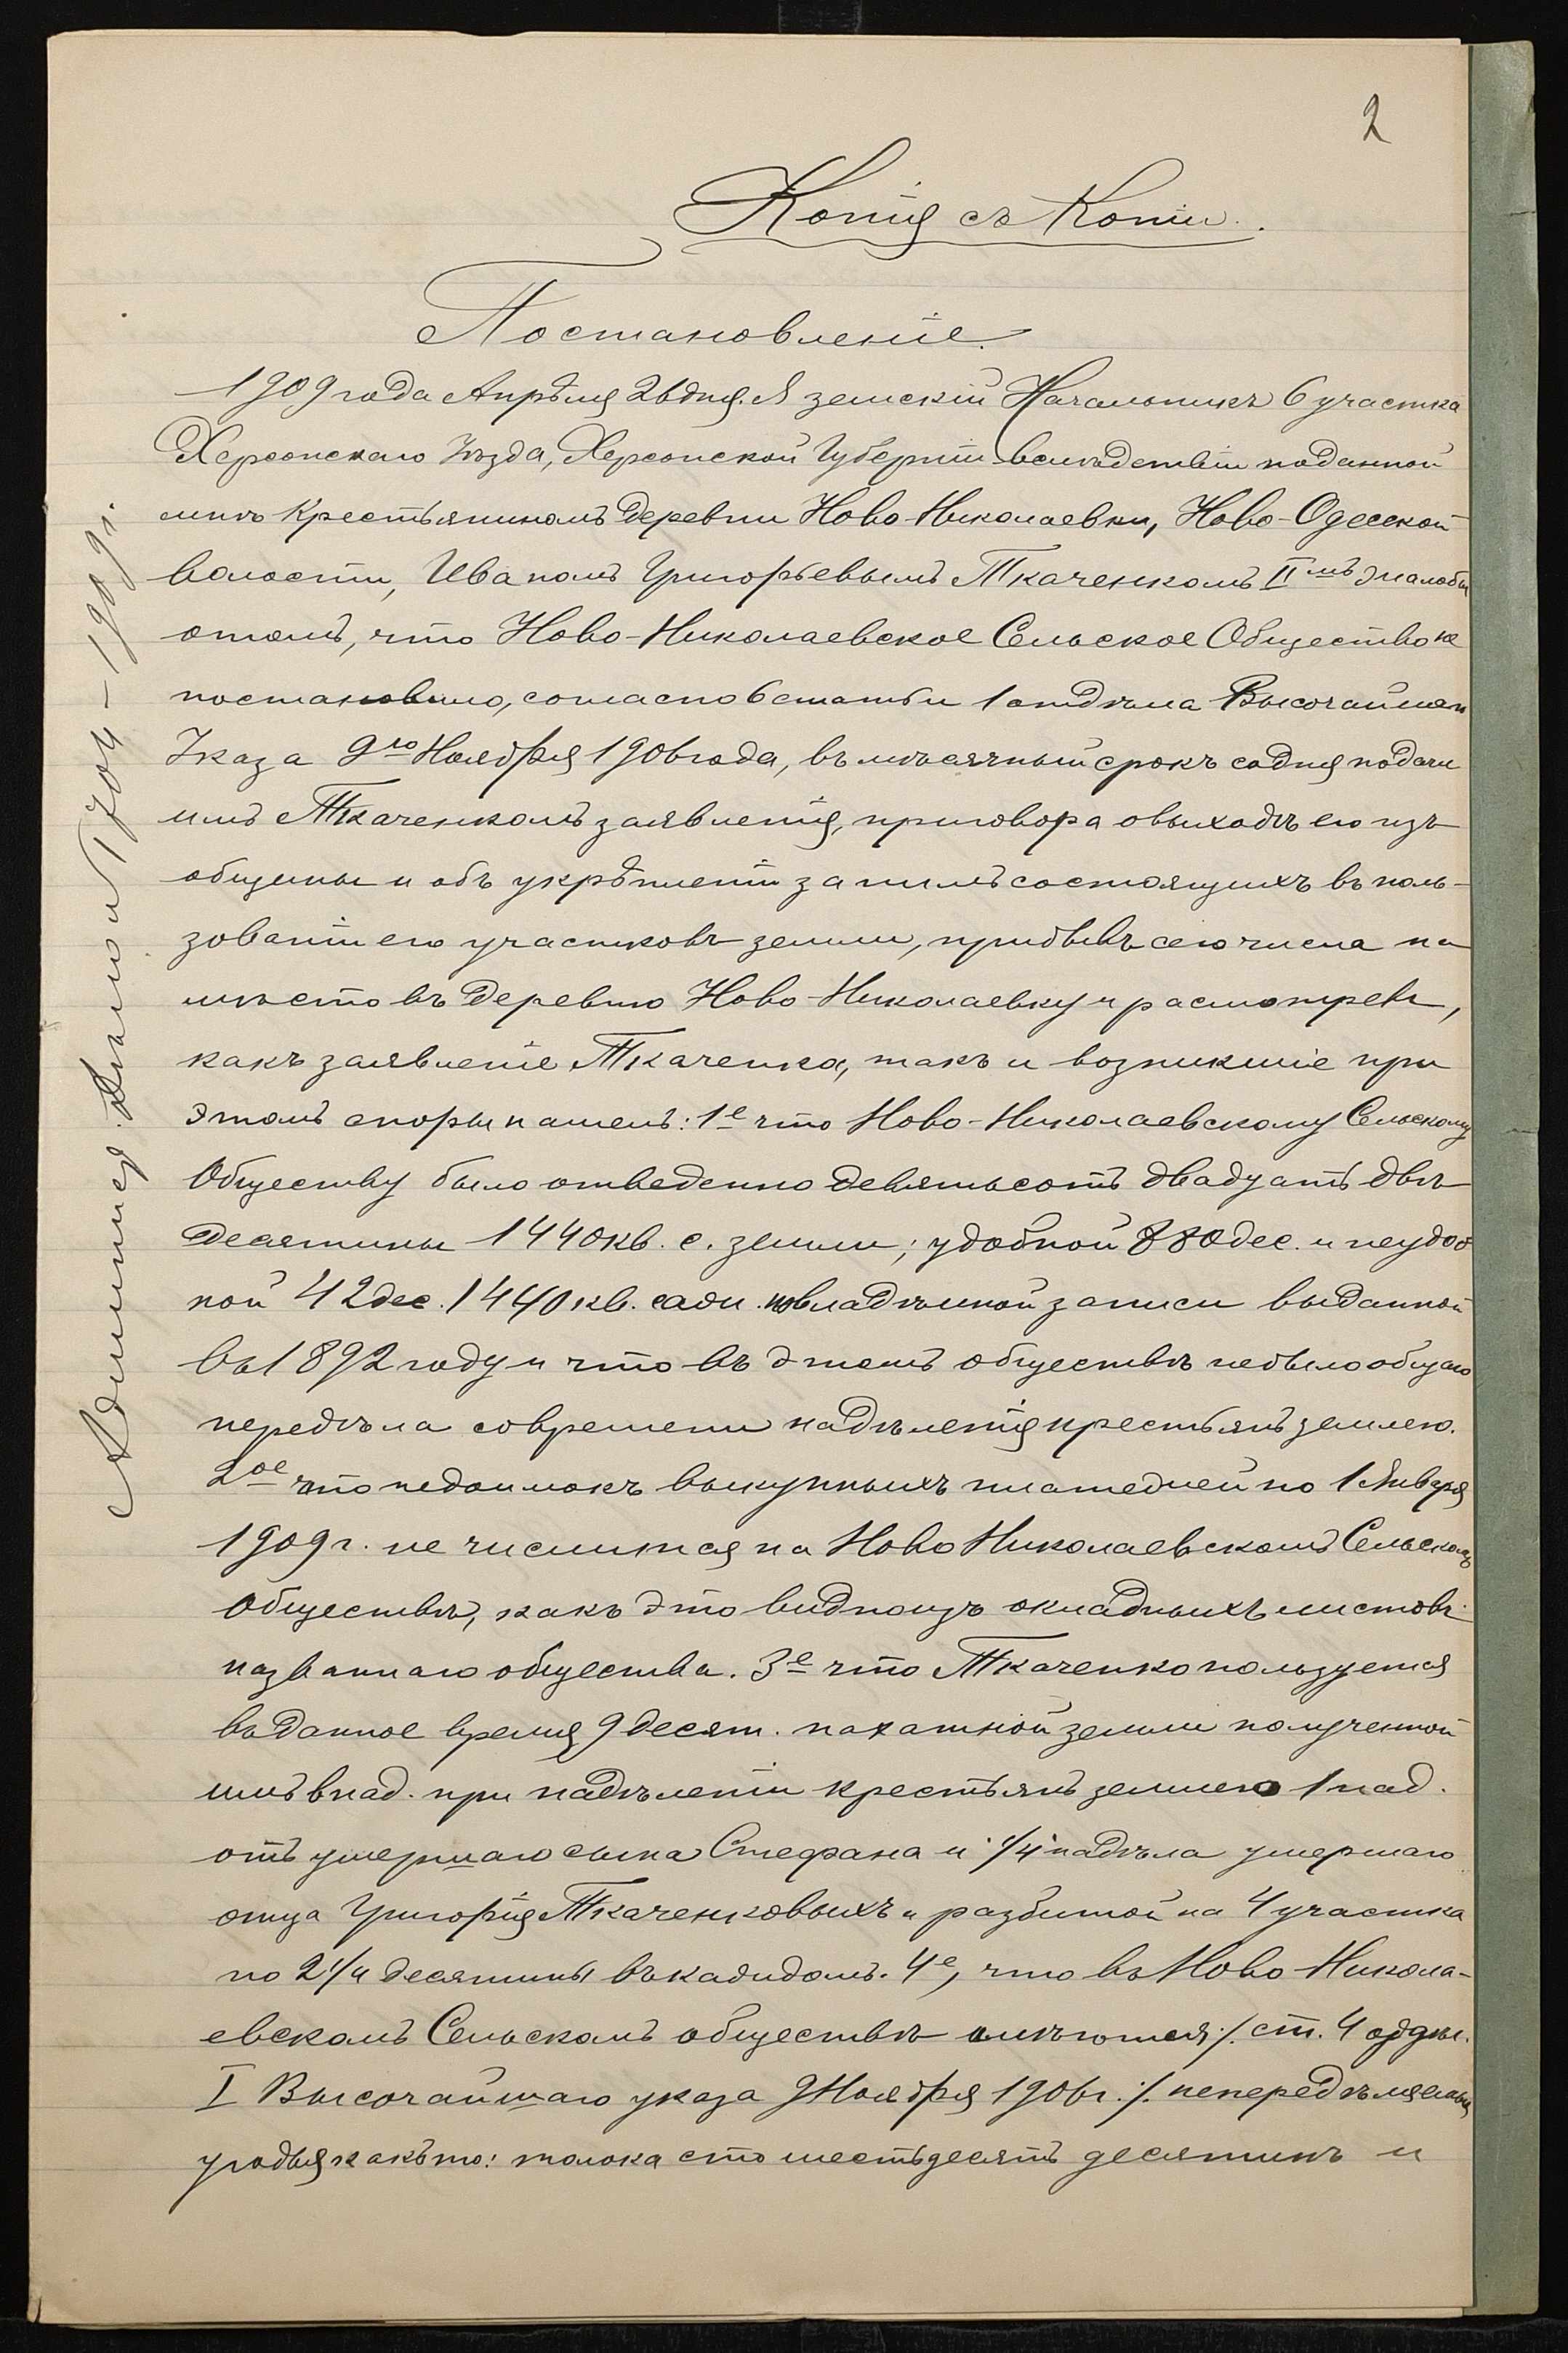 2
Копія съ Копіи.
Постановленіе.
1909 года Апрѣля 26 дня. Я земскій Начальникъ 6 участка
Херсонскаго Уѣзда, Херсонской Губерніи вслѣдствіи поданной
мнѣ Крестьяниномъ Деревни Ново-Николаевки, Ново-Одесской
волости, Иваномъ Григорьевымъ Ткаченкомъ II мъ жалобы
отомъ, что Ново-Николаевское Сельское Общество не
постановило, согласно 6 статьи 1 отдѣла Высочайшаго
Указа 9го Ноября 1906 года, въ мѣсячный срокъ содня подачи
имъ Ткаченкомъ заявленія, приговора овыходѣ его изъ
общины и объ укрѣпленіи за нимъ состоящихъ въ поль-
зованіи его участковъ земли, прибывъ сего числа на
мѣсто въ Деревню Ново-Николаевку и расмотревъ,
какъ заявленіе Ткаченка, такъ и возникшіе при
этомъ споры нашелъ: 1е что Ново-Николаевскому Сельскому
Обществу было отведенно девятьсотъ двадцать двѣ
десятины 1440 кв. с. земли; удобной 880 дес. и неудоб
ной 42 дес. 1440 кв. саж. повладѣнной записи выданной
въ 1892 году и что въ этомъ обществѣ небыло общаго
передѣла современи надѣленія крестьянъ землею.
2ое что недоимокъ выкупныхъ платежей по 1 Января
1909 г. не числится на Ново Николаевскомъ Сельскомъ
Обществѣ, какъ это видноизъ окладныхъ листовъ
названнаго общества. 3е что Ткаченко пользуется
въ данное время 9 десят. пахатной земли полученной
имъ в над. при надѣленіи крестьянъ землею 1 над.
отъ умершаго сына Стефана и 1/4 надѣла умершаго
отца Григорія Ткаченковыхъ и разбитой на 4 участка
по 2 1/4 десятины въ каждомъ. 4е, что въ Ново-Никола-
евскомъ Сельскомъ обществѣ имѣются ./. ст. 4 отдѣл.
I Высочайшаго указа 9 Ноября 1906 г. ./. непередѣляемыя
угодья какъ то: толока сто шестьдесятъ десятинъ и
1909 г.